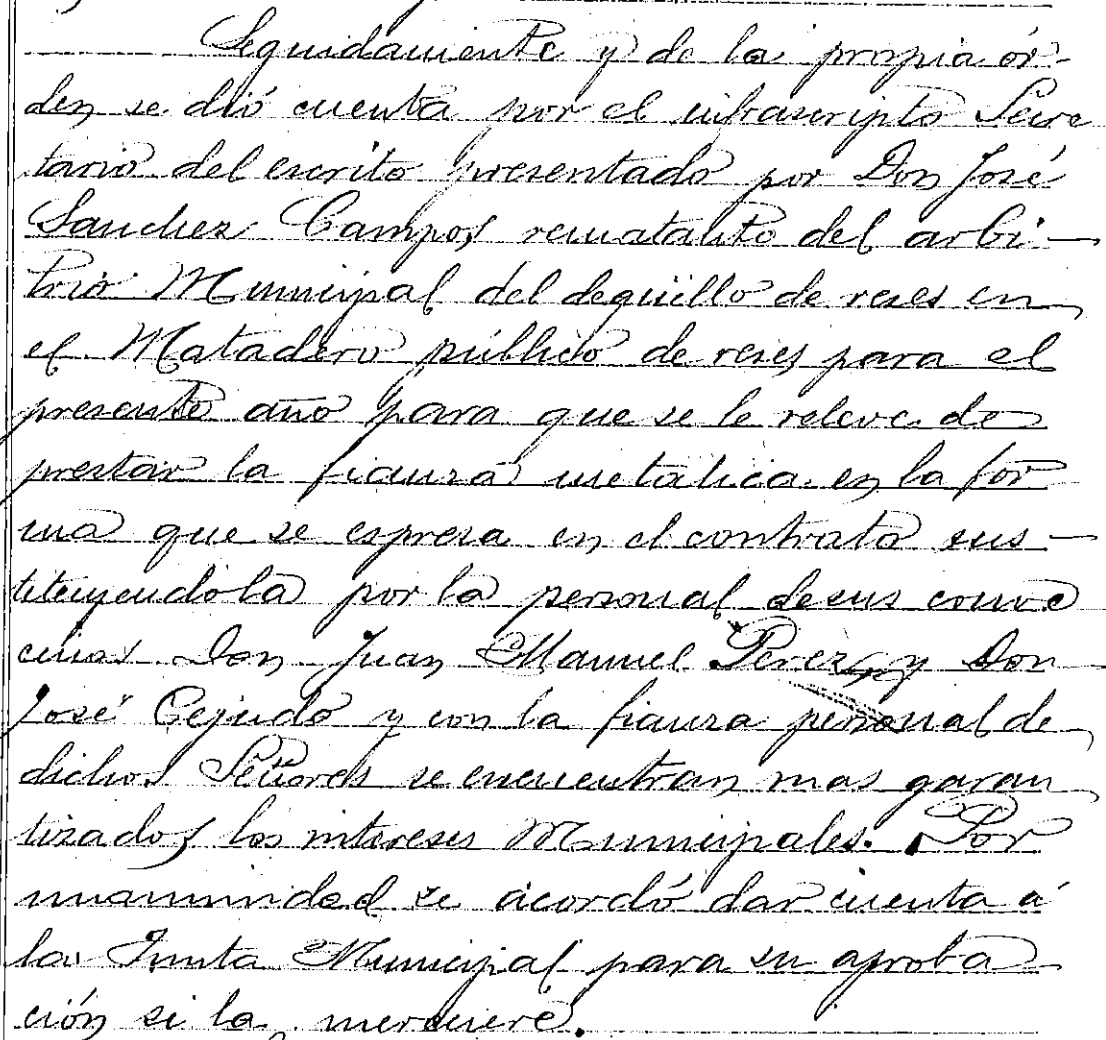 Seguidamente y de la propia ór-
den se dió cuenta por el infrascripto Secre
tario del escrito presentado por Don José
Sanchez Campos rematalito del arbi-
trio Municipal del degüello de reses en
el Matadero público de reses para el
presente año para que se le releve de
prestar la fianza metalica en la for
ma que se espresa en el contrato sus-
tituyendola por la personal de sus conve
cinos Don Juan Manuel Perez y Don
José Cejudo y con la fianza personal de
dichos Señores se encuentran mas garan
tizados los intereses Municipales. Por
unanimidad se acordó dar cuenta á
la Junta Municipal para su aproba
ción si la mereciere.